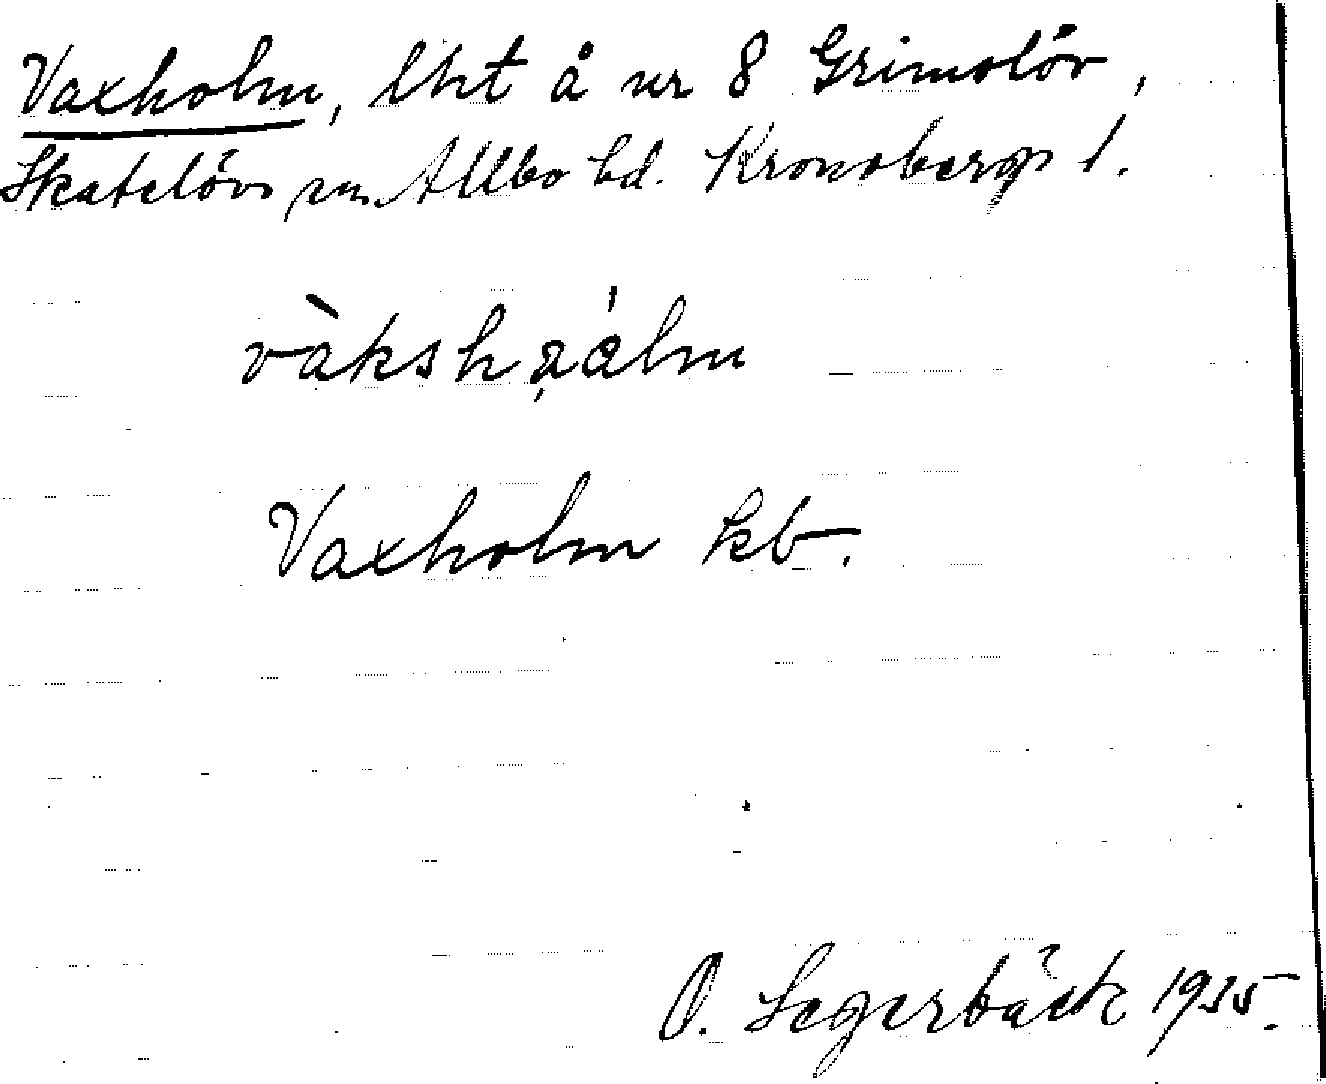 Vaxholm, lht å nr 8 Grimslöv,
Skatelövs sn. Allbo hd. Kronobergs l.
Vaxholm kb.
O. Segerbäck 1935.